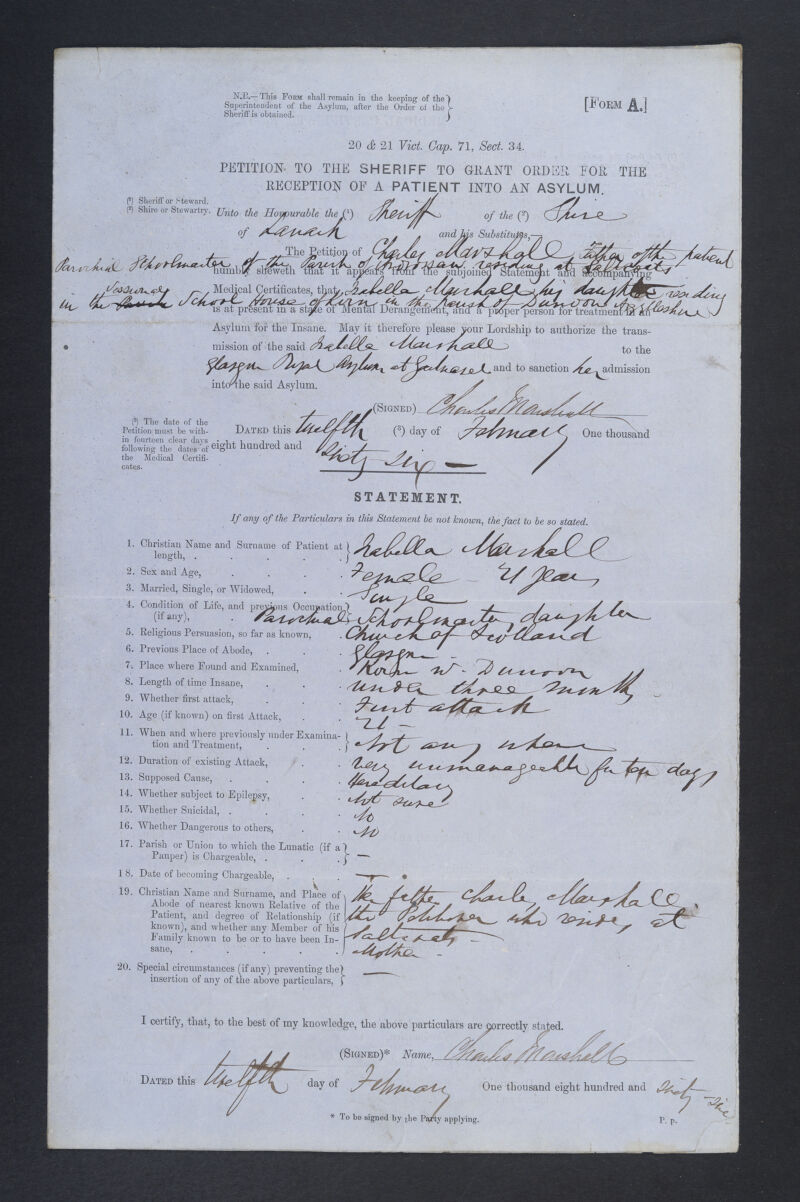 N.B.—This Form shall remain in the keeping of the
Superintendent of the Asylum, after the Order of the
Sheriff is obtained.
[Form A.]
20 & 21 Vict. Cap. 71, Sect. 34.
PETITION TO THE SHERIFF TO GRANT ORDER FOR THE
RECEPTION OF A PATIENT INTO AN ASYLUM.
(¹) Sheriff or Steward.
(²) Shire or Stewartry.
Unto the Honourable the (¹) Sheriff of the (²) Shire
of Lanark and his Substitutes,—
The Petition of Charles Marshall Father of the patient
Parochial Schoolmaster of the Parish of residing at Saltcoats
humbly sheweth that it appears from the subjoined Statement and accompanying
Medical Certificates, that Isabella Marshall his daughter residing
in the School House of Kirn in the Parish of Dunoon Argyllshire
is at present in a state of Mental Derangement, and a proper person for treatment in an
Asylum for the Insane. May it therefore please your Lordship to authorize the trans-
mission of the said Isabella Marshall to the
Glasgow Royal Asylum at Gartnavel and to sanction her admission
into the said Asylum.
(Signed) Charles Marshall
(³) The date of the
Petition must be with-
in fourteen clear days
following the dates of
the Medical Certifi-
cates.
Dated this twelfth (³) day of February One thousand
eight hundred and Sixty Six —
STATEMENT.
If any of the Particulars in this Statement be not known, the fact to be so stated.
1. Christian Name and Surname of Patient at
length, Isabella Marshall
2. Sex and Age, Female – 21 years
3. Married, Single, or Widowed, Single
4. Condition of Life, and previous Occupation
(if any), Parochial Schoolmasters daughter
5. Religious Persuasion, so far as known, Church of Scotland
6. Previous Place of Abode, Glasgow
7. Place where Found and Examined, Kirn Dunoon
8. Length of time Insane, under three months
9. Whether first attack, First attack
10. Age (if known) on first Attack, 21 –
11. When and where previously under Examina-
tion and Treatment, Not any where
12. Duration of existing Attack, very unmanageable for ten days
13. Supposed Cause, Hereditary
14. Whether subject to Epilepsy, Not sure
15. Whether Suicidal, No
16. Whether Dangerous to others, No
17. Parish or Union to which the Lunatic (if a
Pauper) is Chargeable, —
18. Date of becoming Chargeable, —
19. Christian Name and Surname, and Place of
Abode of nearest known Relative of the
Patient, and degree of Relationship (if
known), and whether any Member of his
Family known to be or to have been In-
sane,
The father Charles Marshall
the Petitioner who resides at
Saltcoats –
Mother –
20. Special circumstances (if any) preventing the
insertion of any of the above particulars, —
I certify, that, to the best of my knowledge, the above particulars are correctly stated.
(Signed)* Name, Charles Marshall
Dated this twelfth day of February One thousand eight hundred and sixty-six
* To be signed by the Party applying.
P. p.